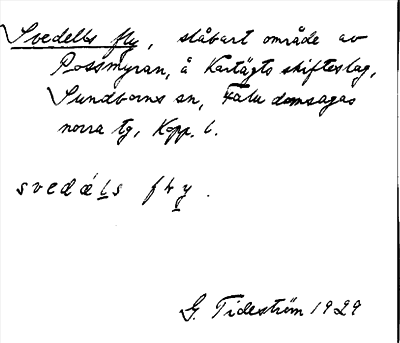 Svedells fly, slåbart område av
Rossmyran, å Kartägts skifteslag,
Sundborns sn, Falu domsagas
norra tg, Kopp. l.
svedäls fly.
G. Tideström 1929